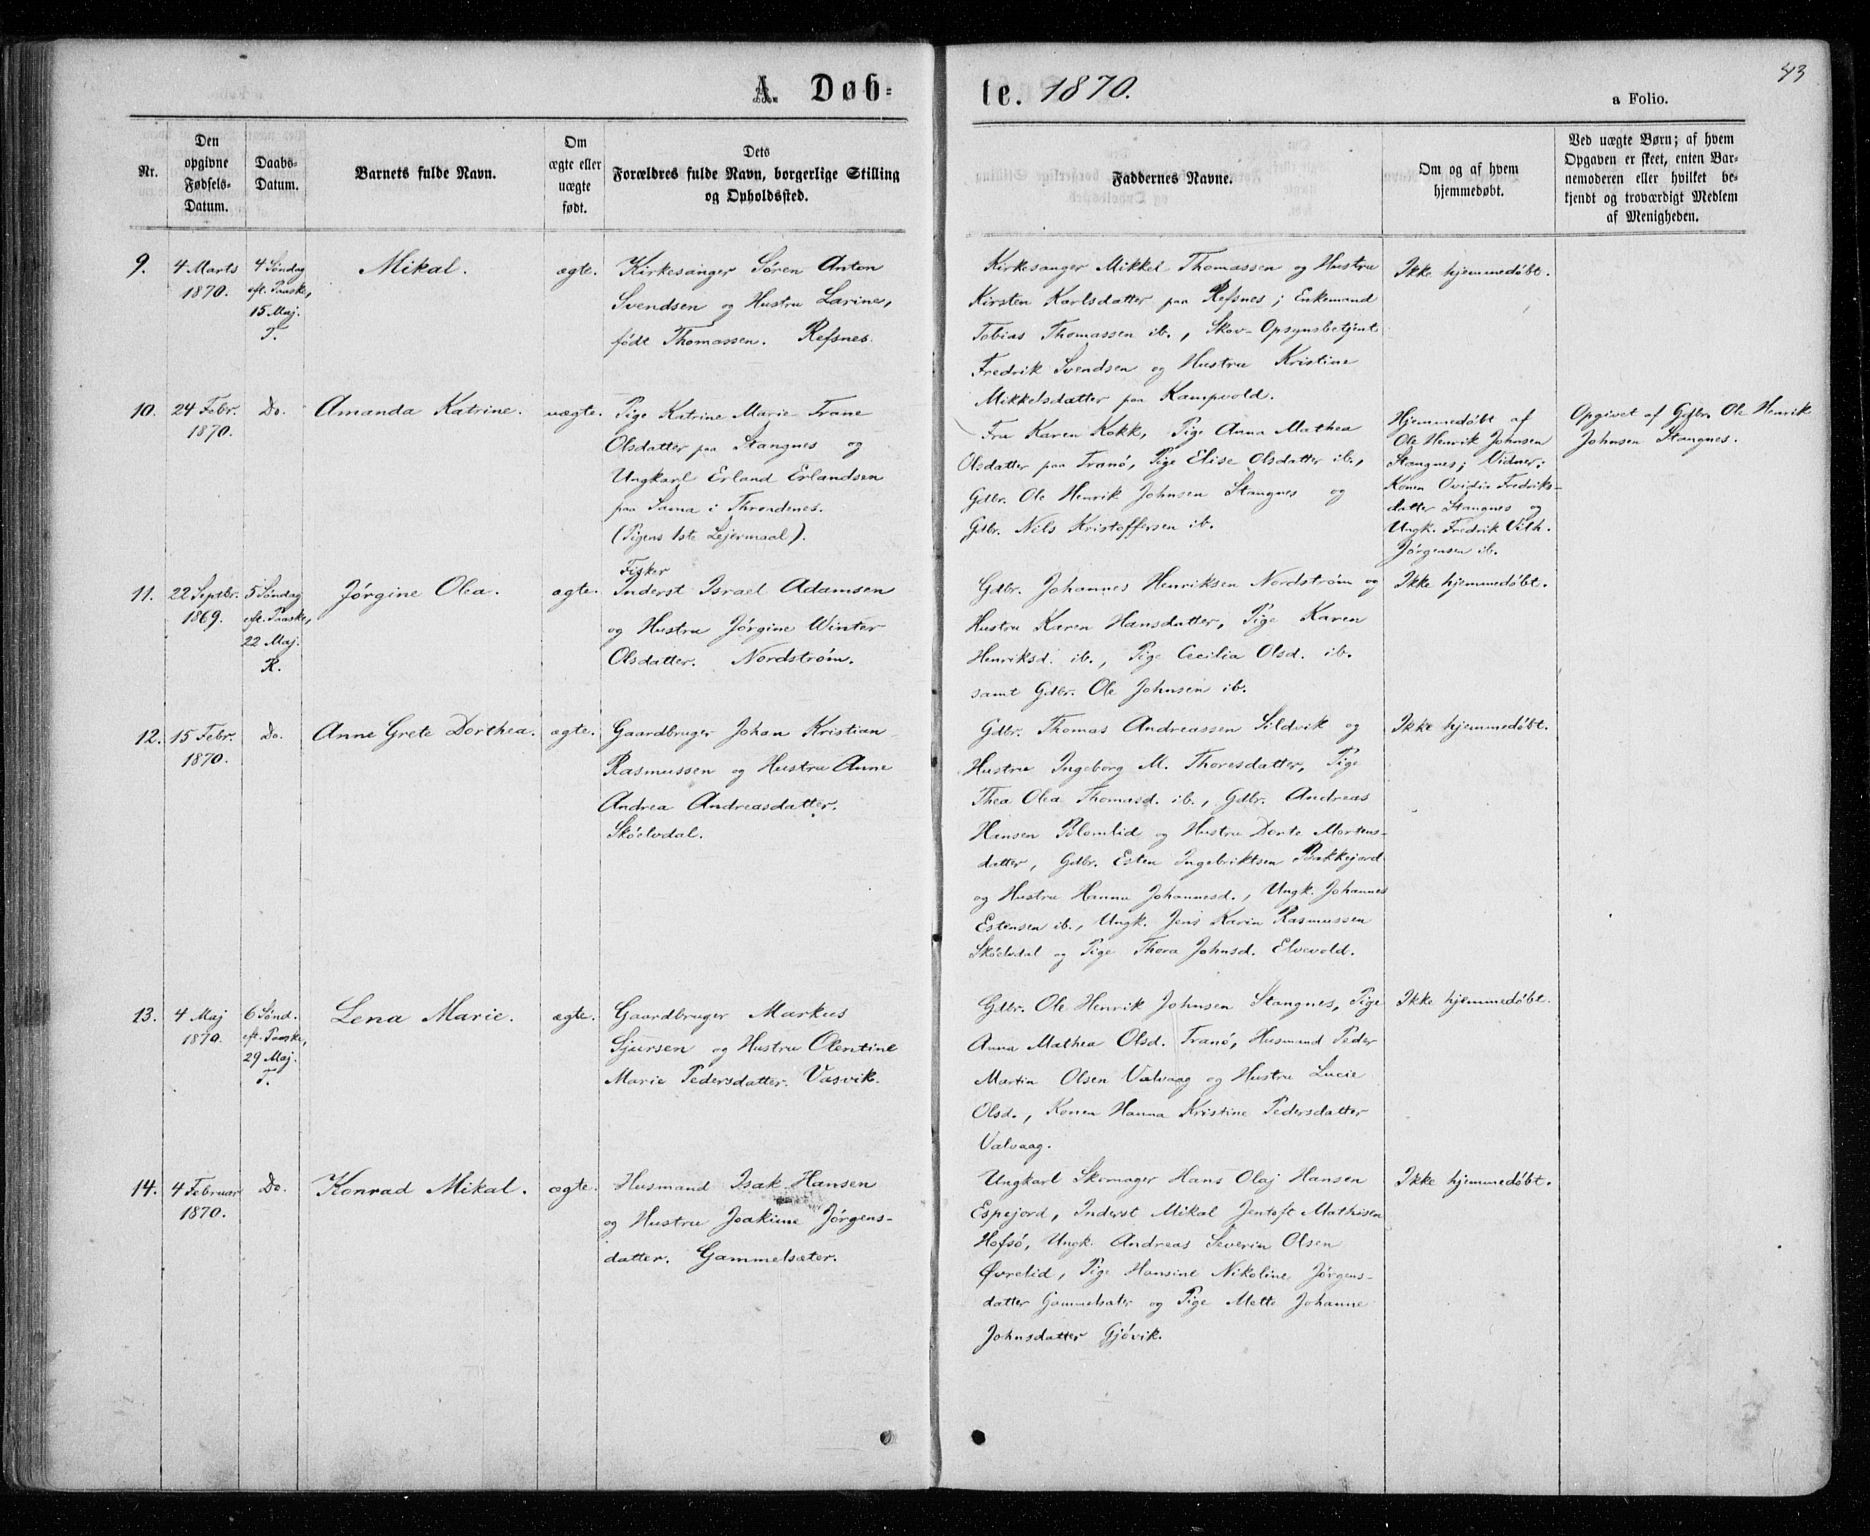 A. Døb-
te. 1870.
43
a Folio.
Nr.
Den
opgivne
Fødsels-
Datum.
Daabs-
Datum.
Barnets fulde Navn.
Om
ægte eller
uægte
født.
Dets
Forældres fulde Navn, borgerlige Stilling
og Opholdssted.
Faddernes Navne.
Om og af hvem
hjemmedøbt.
Ved uægte Børn; af hvem
Opgaven er skeet, enten Bar-
nemoderen eller hvilket be-
kjendt og troværdigt Medlem
af Menigheden.
9.
4 Marts
1870.
4 Søndag
eft. Paaske,
15 Maj.
T.
Mikal.
ægte.
Kirkesanger Søren Anton
Svendsen og Hustru Larine,
født Thomassen. Refsnes.
Kirkesanger Mikkel Thomassen og Hustru
Kirsten Karlsdatter paa Refsnes; Enkemand
Tobias Thomassen ib., Skov-Opsynsbetjent
Fredrik Svendsen og Hustru Kristine
Mikkelsdatter paa Kampvold.
Ikke hjemmedøbt.
10.
24 Febr.
1870.
Do.
Amanda Katrine.
uægte.
Pige Katrine Marie Trane
Olsdatter paa Stangnes og
Ungkarl Erland Erlandsen
paa Sama i Throndenes.
(Pigens 1ste Lejermaal).
Fru Karen Kokk, Pige Anna Mathea
Olsdatter paa Tranø, Pige Elise Olsdatter ib.,
Gdbr. Ole Henrik Johnsen Stangnes og
Gdbr. Nils Kristoffersen ib.
Hjemmedøbt af
Ole Henrik Johnsen
Stangnes; Vidner:
Konen Ovidia Fredriks-
datter Stangnes og
Ungk. Fredrik Vilh.
Jørgensen ib.
Opgivet af Gdbr. Ole Henrik
Johnsen Stangnes.
11.
22 Septbr.
1869.
5 Søndag
eft. Paaske,
22 Maj.
R.
Jørgine Olea.
ægte.
Fisker
Inderst Israel Adamsen
og Hustru Jørgine Winter
Olsdatter. Nordstrøm.
Gdbr. Johannes Henriksen Nordstrøm og
Hustru Karen Hansdatter, Pige Karen
Henriksd. ib., Pige Cecilia Olsd. ib.
samt Gdbr. Ole Johnsen ib.
Ikke hjemmedøbt.
12.
15 Febr.
1870.
Do.
Anne Grete Dorthea.
ægte.
Gaardbruger Johan Kristian
Rasmussen og Hustru Anne
Andrea Andreasdatter.
Skóelvdal.
Gdbr. Thomas Andreassen Sildvik og
Hustru Ingeborg M. Thoresdatter, Pige
Thea Olea Thomasd. ib., Gdbr. Andreas
Hansen Blomlid og Hustru Dorte Mortens-
datter, Gdbr. Esten Ingebriktsen Bakkejord
og Hustru Hanna Johannesd., Ungk. Johannes
Estensen ib., Ungk. Jens Karin Rasmussen
Skóelvdal og Pige Thora Johnsd. Elvevold.
Ikke hjemmedøbt.
13.
4 Maj
1870.
6 Sønd.
eft. Paaske,
29 Maj.
T.
Lena Marie.
ægte.
Gaardbruger Markus
Sjursen og Hustru Olentine
Marie Pedersdatter. Vasvik.
Gdbr. Ole Henrik Johnsen Stangnes, Pige
Anna Mathea Olsd. Tranø, Husmand Peder
Martin Olsen Valvaag og Hustru Lucie
Olsd., Konen Hanna Kristine Pedersdatter
Valvaag.
Ikke hjemmedøbt.
14.
4 Februar
1870.
Do.
Konrad Mikal.
ægte.
Husmand Isak Hansen
og Hustru Joakime Jørgens-
datter. Gammelsæter.
Ungkarl Skomager Hans Olaj Hansen
Espejord, Inderst Mikal Jentoft Mathisen
Hofsø, Ungk. Andreas Severin Olsen
Øvrelid, Pige Hansine Nikoline Jørgens-
datter Gammelsæter og Pige Mette Johanne
Johnsdatter Gjøvik.
Ikke hjemmedøbt.